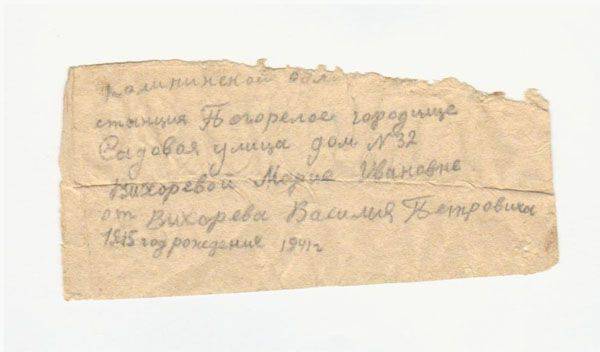 Калининской обл
станция Погорелое городище
Садовая улица дом N 32
Вихоревой Марие Ивановне
от Вихорева Василия Петровича
1915 год рождения 1941 г